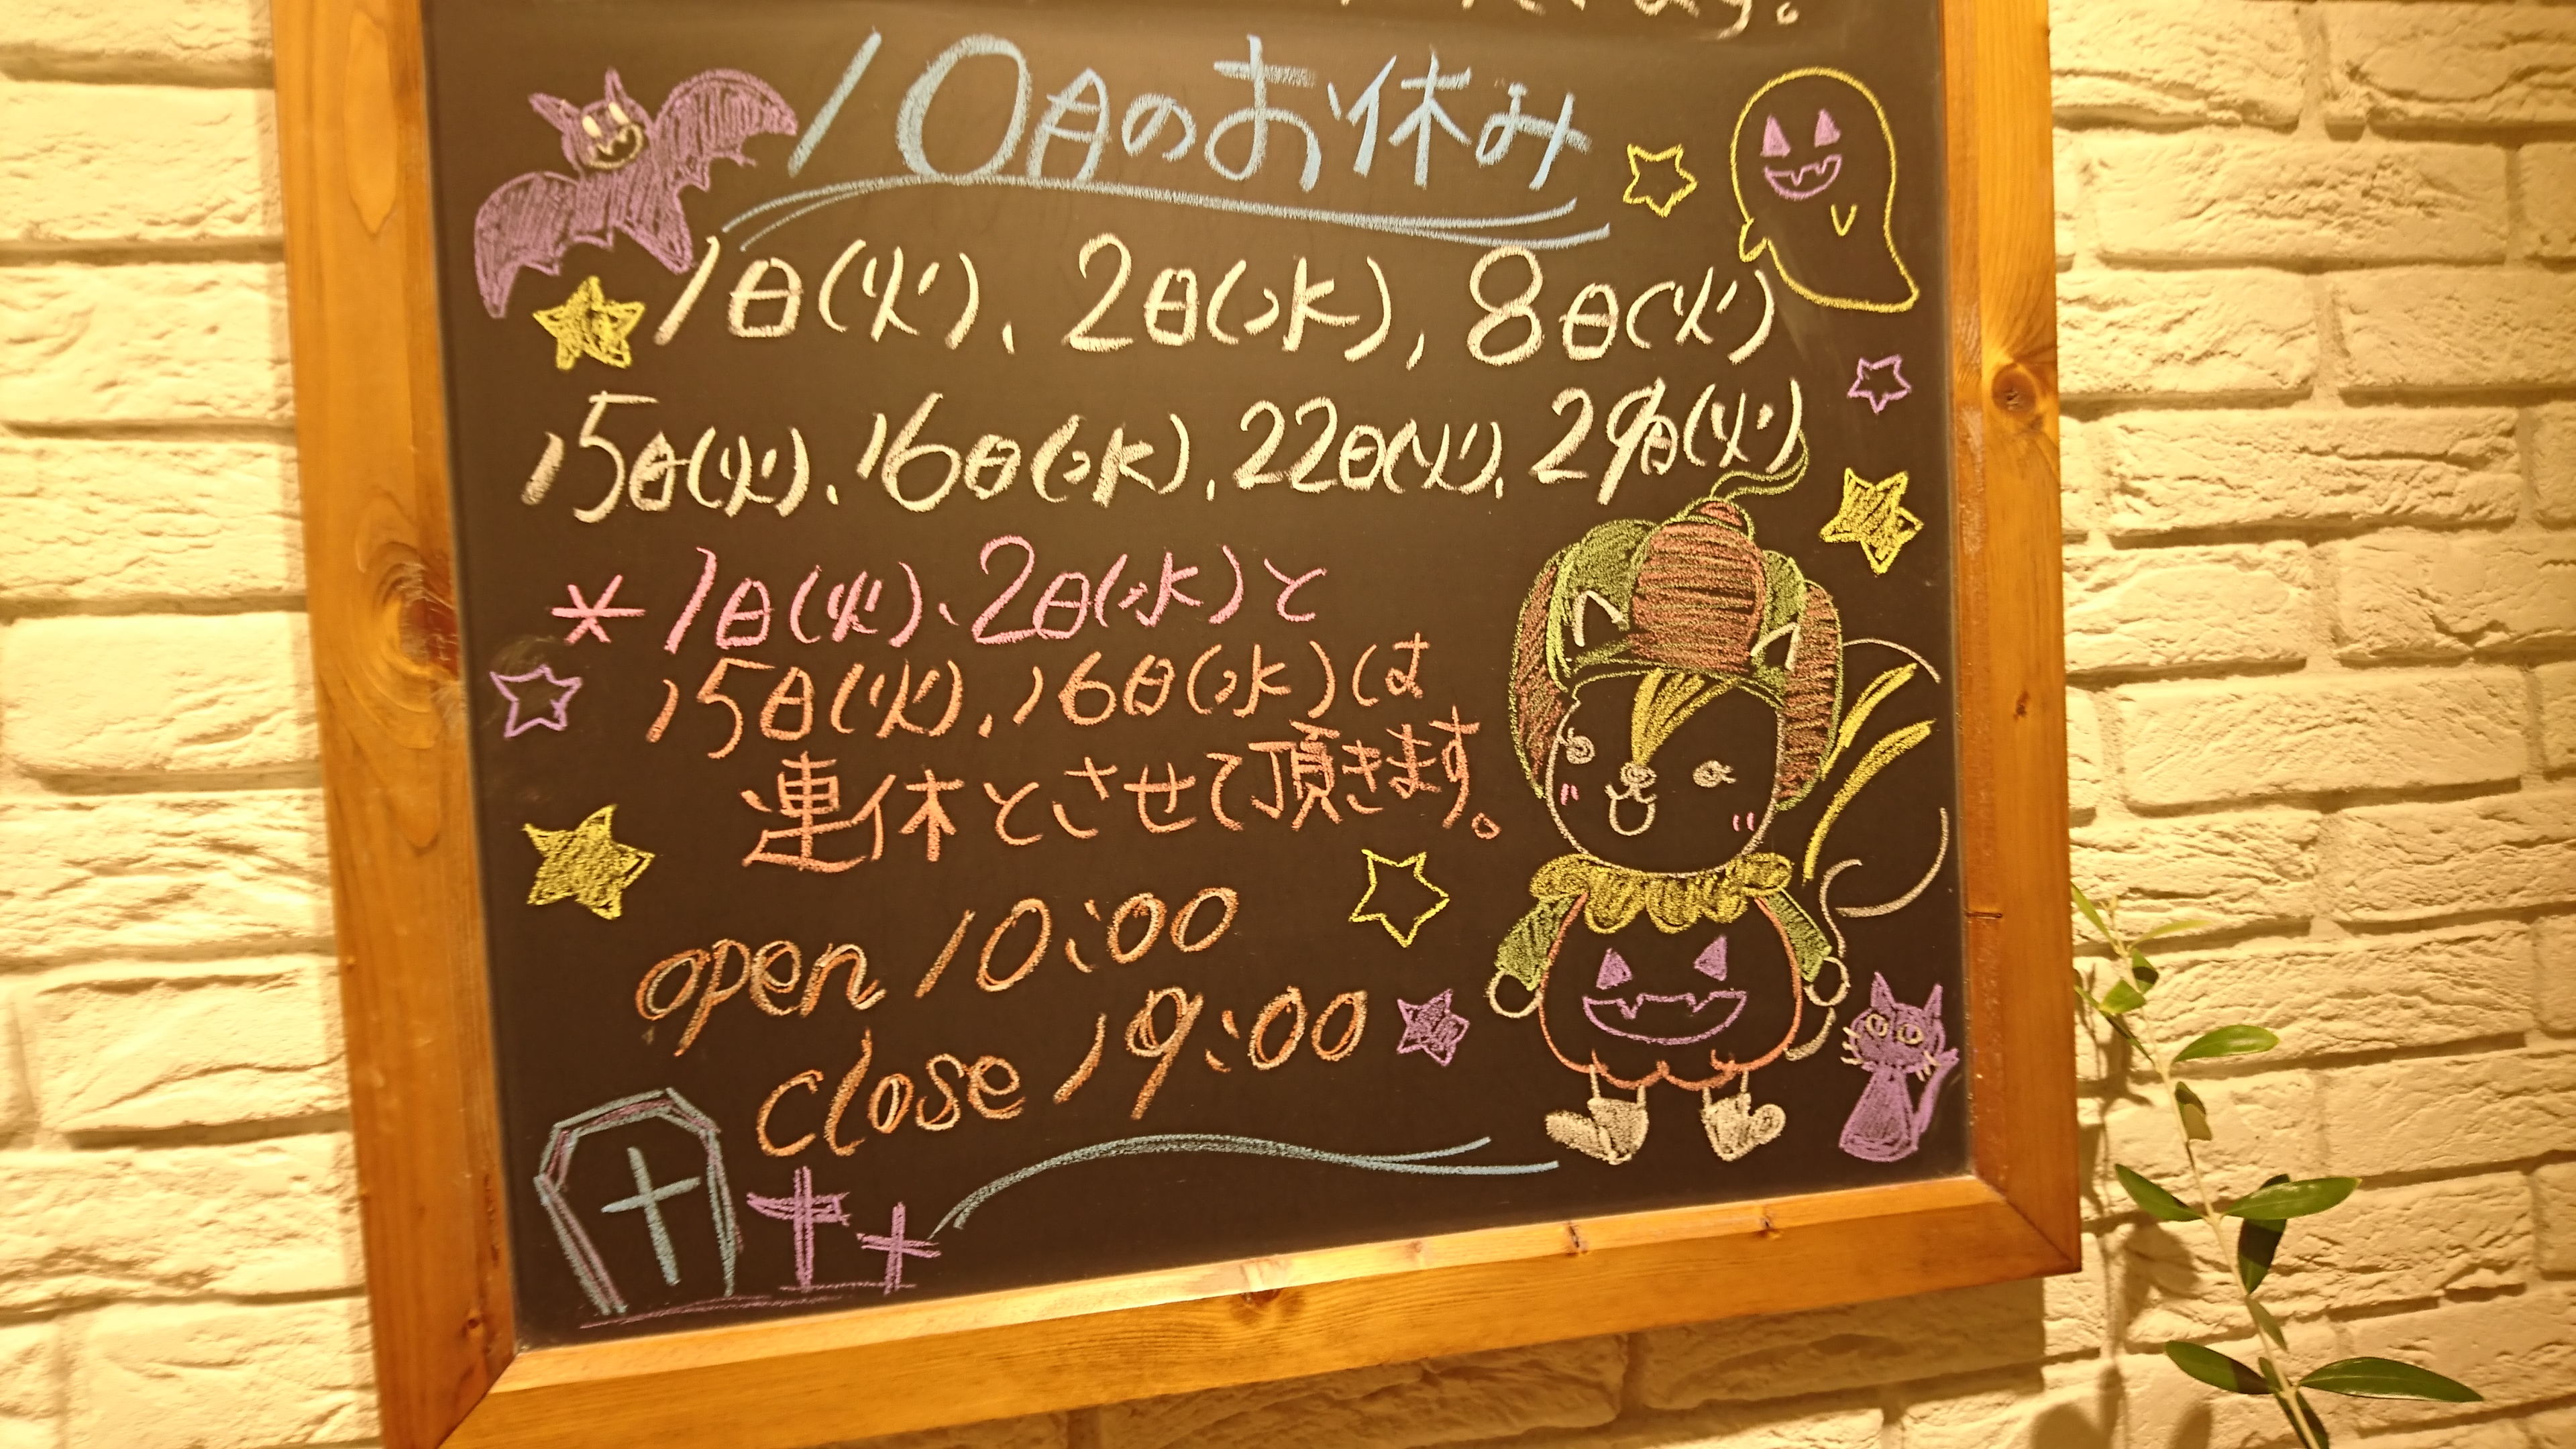 ます。
10月のお休み
1日(火)、2日(水)、8日(火)
15日(火)、16日(水)、22日(火)、29日(火)
*1日(火)、2日(水)と
15日(火)、16日(水)は
連休とさせて頂きます。
open 10:00
close 19:00